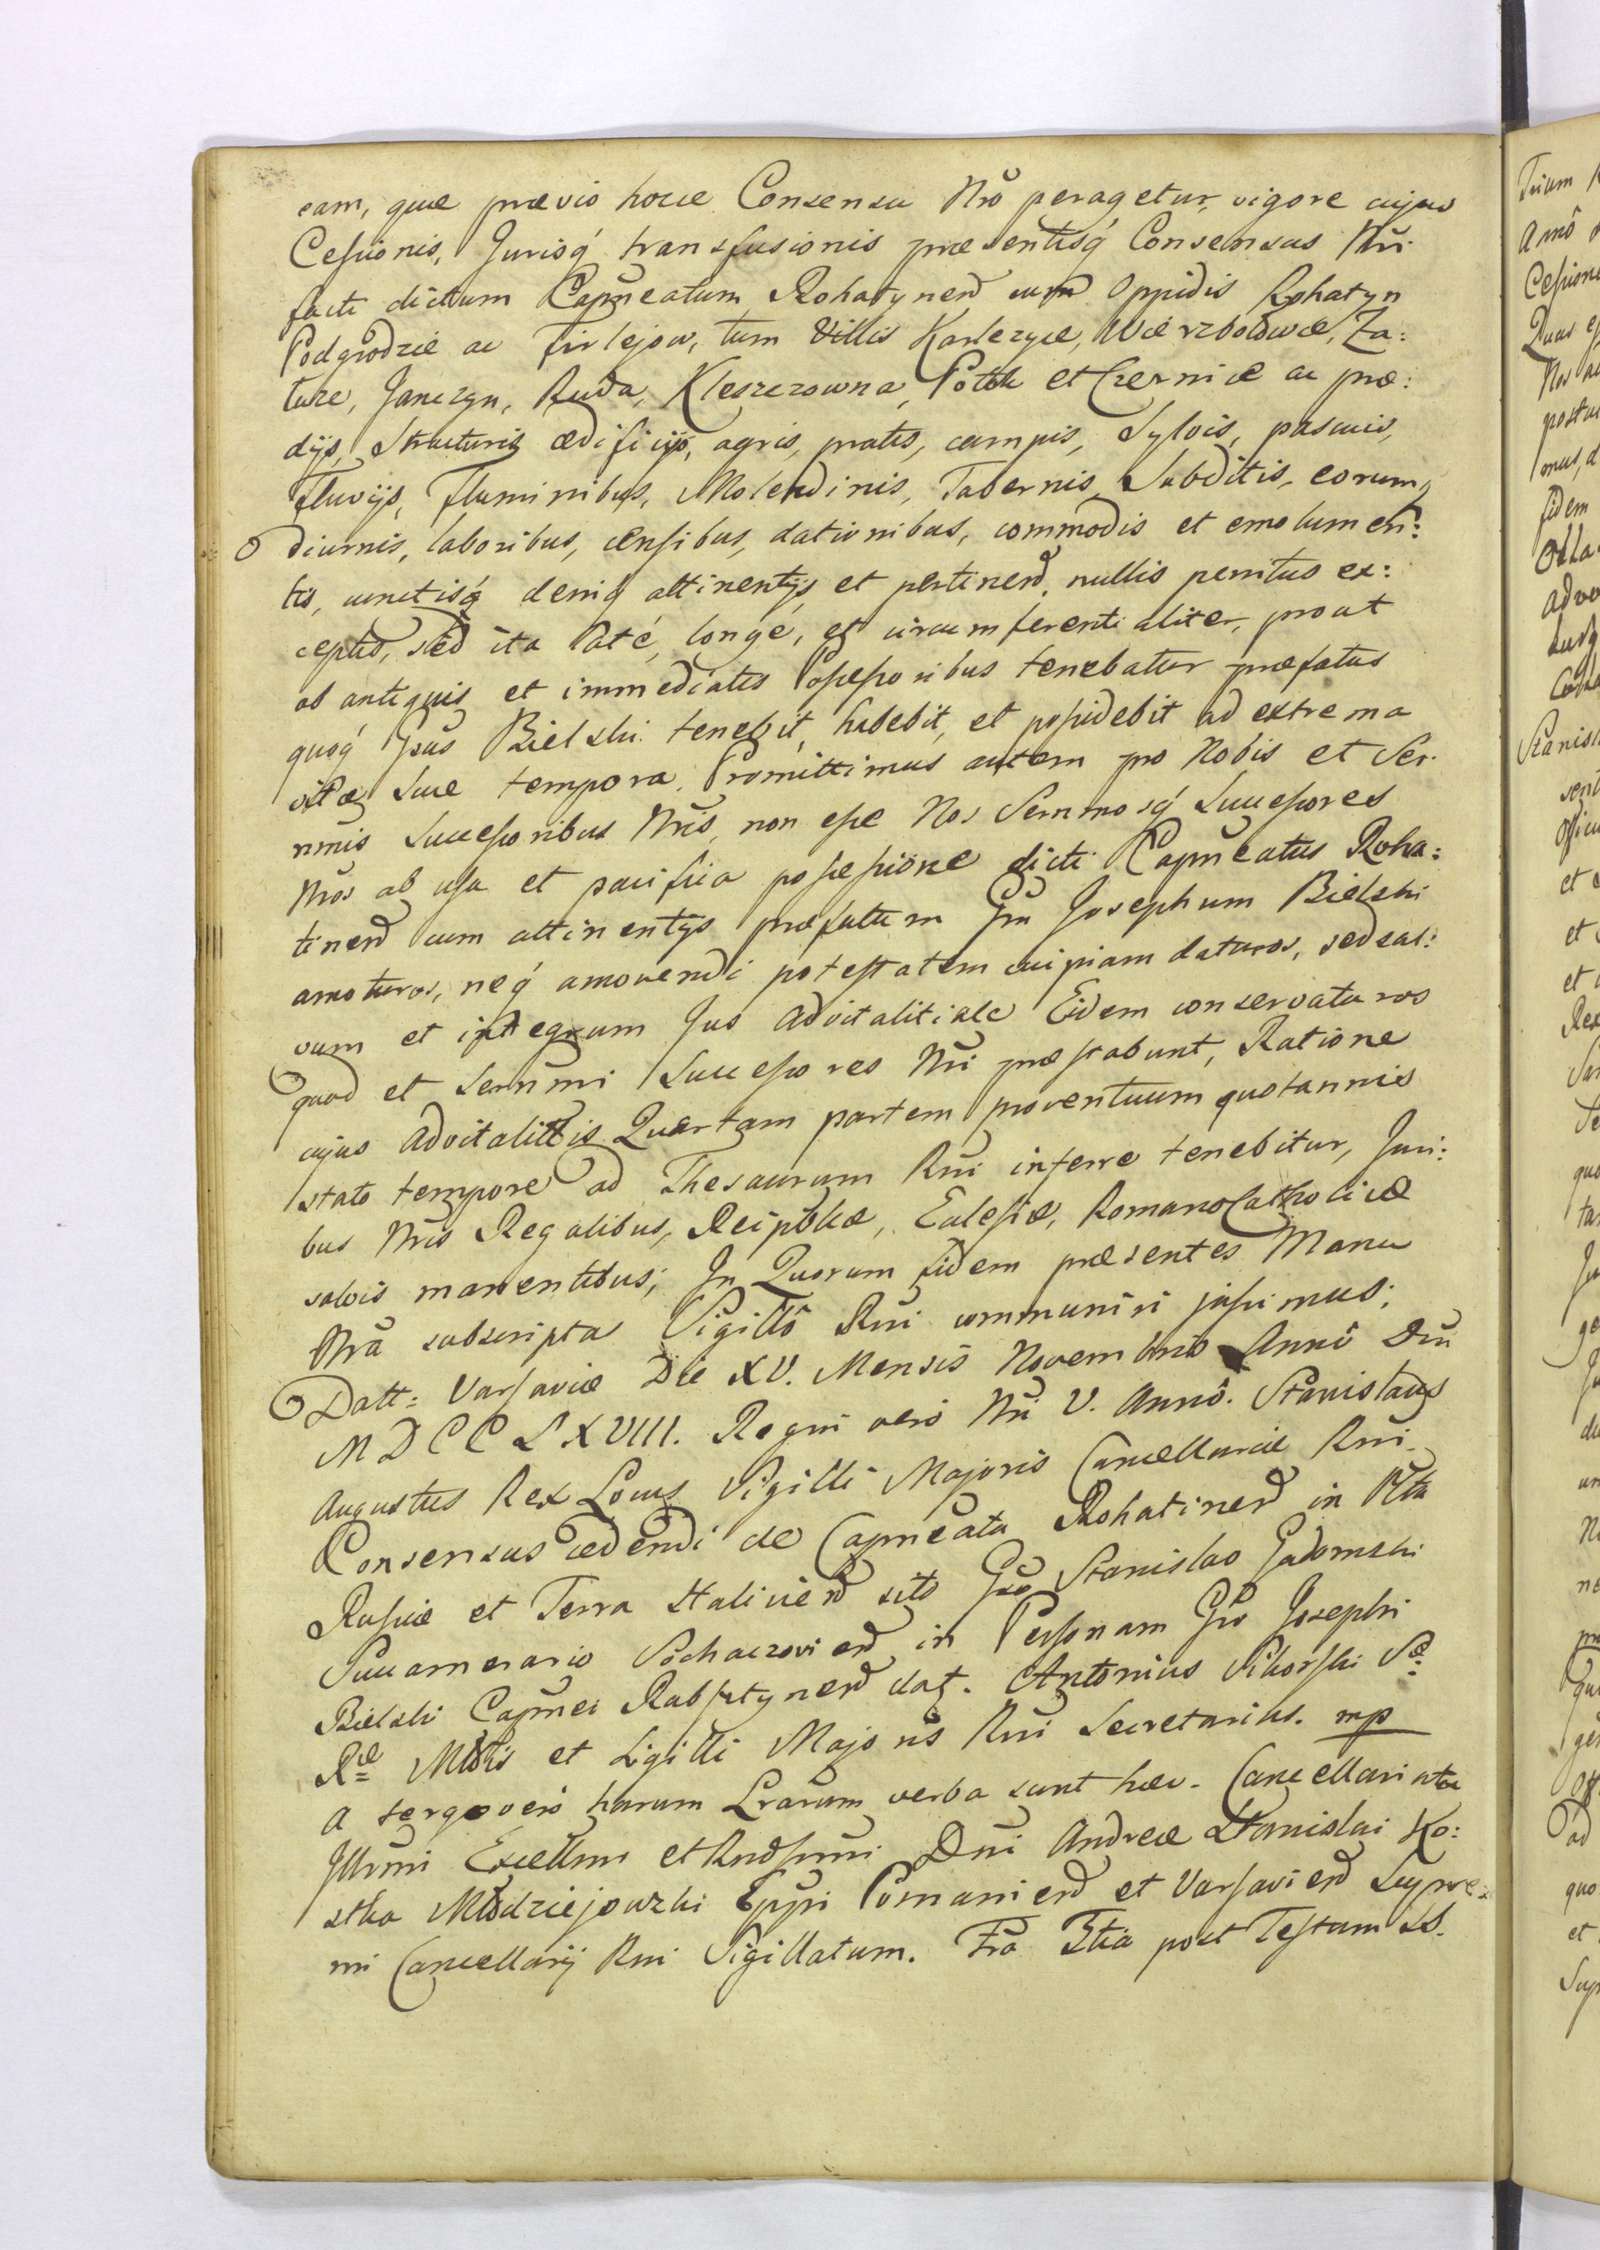 eam, quæ prævio hocce Consensu Nrõ peragetur, vigore cujus
Cessionis, Jurisq́ transfusionis præsentisq́ Consensus Nri
facti dictum Capneatum Rohatynen̄ cum Oppidis Rohatyn
Podgrodzie ac Firlejow, tum Villis Karlczyce, Wierzbolowce, Za:
luze, Janczyn, Ruda, Kleszczowna, Potok et Czernice ac præ:
dijs, Structuris ædificijs, agris, pratis, campis, Sylvis, pascuis,
Fluvijs, Fluminibus, Molendinis, Tabernis, Subditis, eorum,
diurnis, laboribus, censibus, dationibus, commodis et emolumen:
tis, cunctisq́ deniq́ attinentijs et pertinen̄, nullis penitus ex:
ceptis, sed ita laté, longé, et circumferentialiter, prout
ab antiquis et immediatis Possessoribus tenebatur præfatus
quoq́ Gsūs Bielski tenebit, habebit, et possidebit ad extrema
vitæ suæ tempora. Promittimus autem pro Nobis et Ser:
nmis Successoribus Nris, non esse Nos Sernmosq́ Successores
Nrõs ab usu et pacifica possessione dicti Capneatus Roha:
tinen̄ cum attinentijs præfatum Gn̄ Josephum Bielski
amoturos, neq́ amovendi potestatem cuipiam daturos, sed sal:
vum et integrum Jus Advitalitiale Eidem conservaturos
quod et Sernmi Successores Nri præstabunt, Ratione
cujus Advitalitatis Quartam partem proventuum quotannis
stato tempore ad Thesaurum Rni inferre tenebitur, Juri:
bus Nris Regalibus, Reipblicæ, Eclesiæ, Romano Catholicæ
salvis manentibus; In Quorum fidem præsentes Manu
Nrã subscriptas Sigillô Rni communiri jussimus;
Datt: Varsaviæ Die XV. Mensis Novembris Annô Dni
MDCCLXVIII. Regni vero Nri V. Annô. Stanislaus
Augustus Rex Locus Sigilli Majoris Cancellariæ Rni.
Consensus cedendi de Capneatu Rohatinen̄ in Pltu
Russiæ et Terra Halicien̄ sito Gso Stanislao Gadomski
Succamerario Sochaczovien̄ in Personam Gsi Josephi
Bielski Capnei Rabsztynen̄ dat. Antonius Sikorski Sæ
Ræ Mttis et Sigilli Majoris Rni Secretarius. mp
A tergo vero harum Lrarum verba sunt hæc. Cancellariatu
Jllrmi Excellmi et Rndssmi Dni Andreæ Stanislai Ko:
stka Młodziejowski Eppi Posnanien̄ et Varsavien̄ Supre:
mi Cancellarij Rni Sigillatum. Fra 3tia post Festum SS.